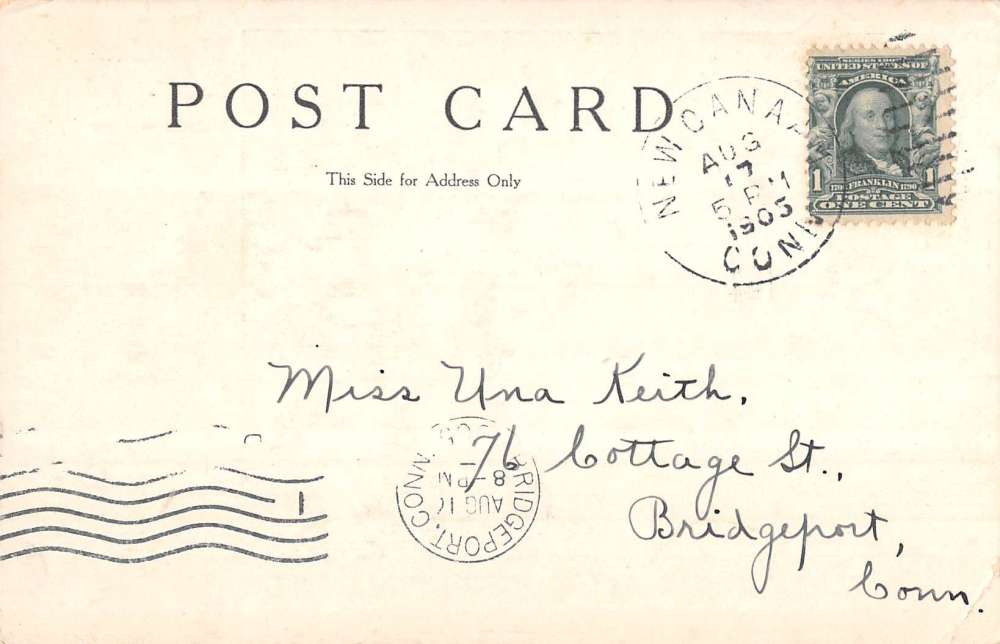 POST CARD
This Side for Address Only
NEW CANAAN
AUG
17
5 PM
1905
CONN
SERIES 1902
UNITED STATES OF
AMERICA
1 1706 FRANKLIN 1790 1
POSTAGE
ONE CENT
Miss Una Keith,
76 Cottage St.,
Bridgeport,
Conn.
BRIDGEPORT, CONN
AUG
8 - PM